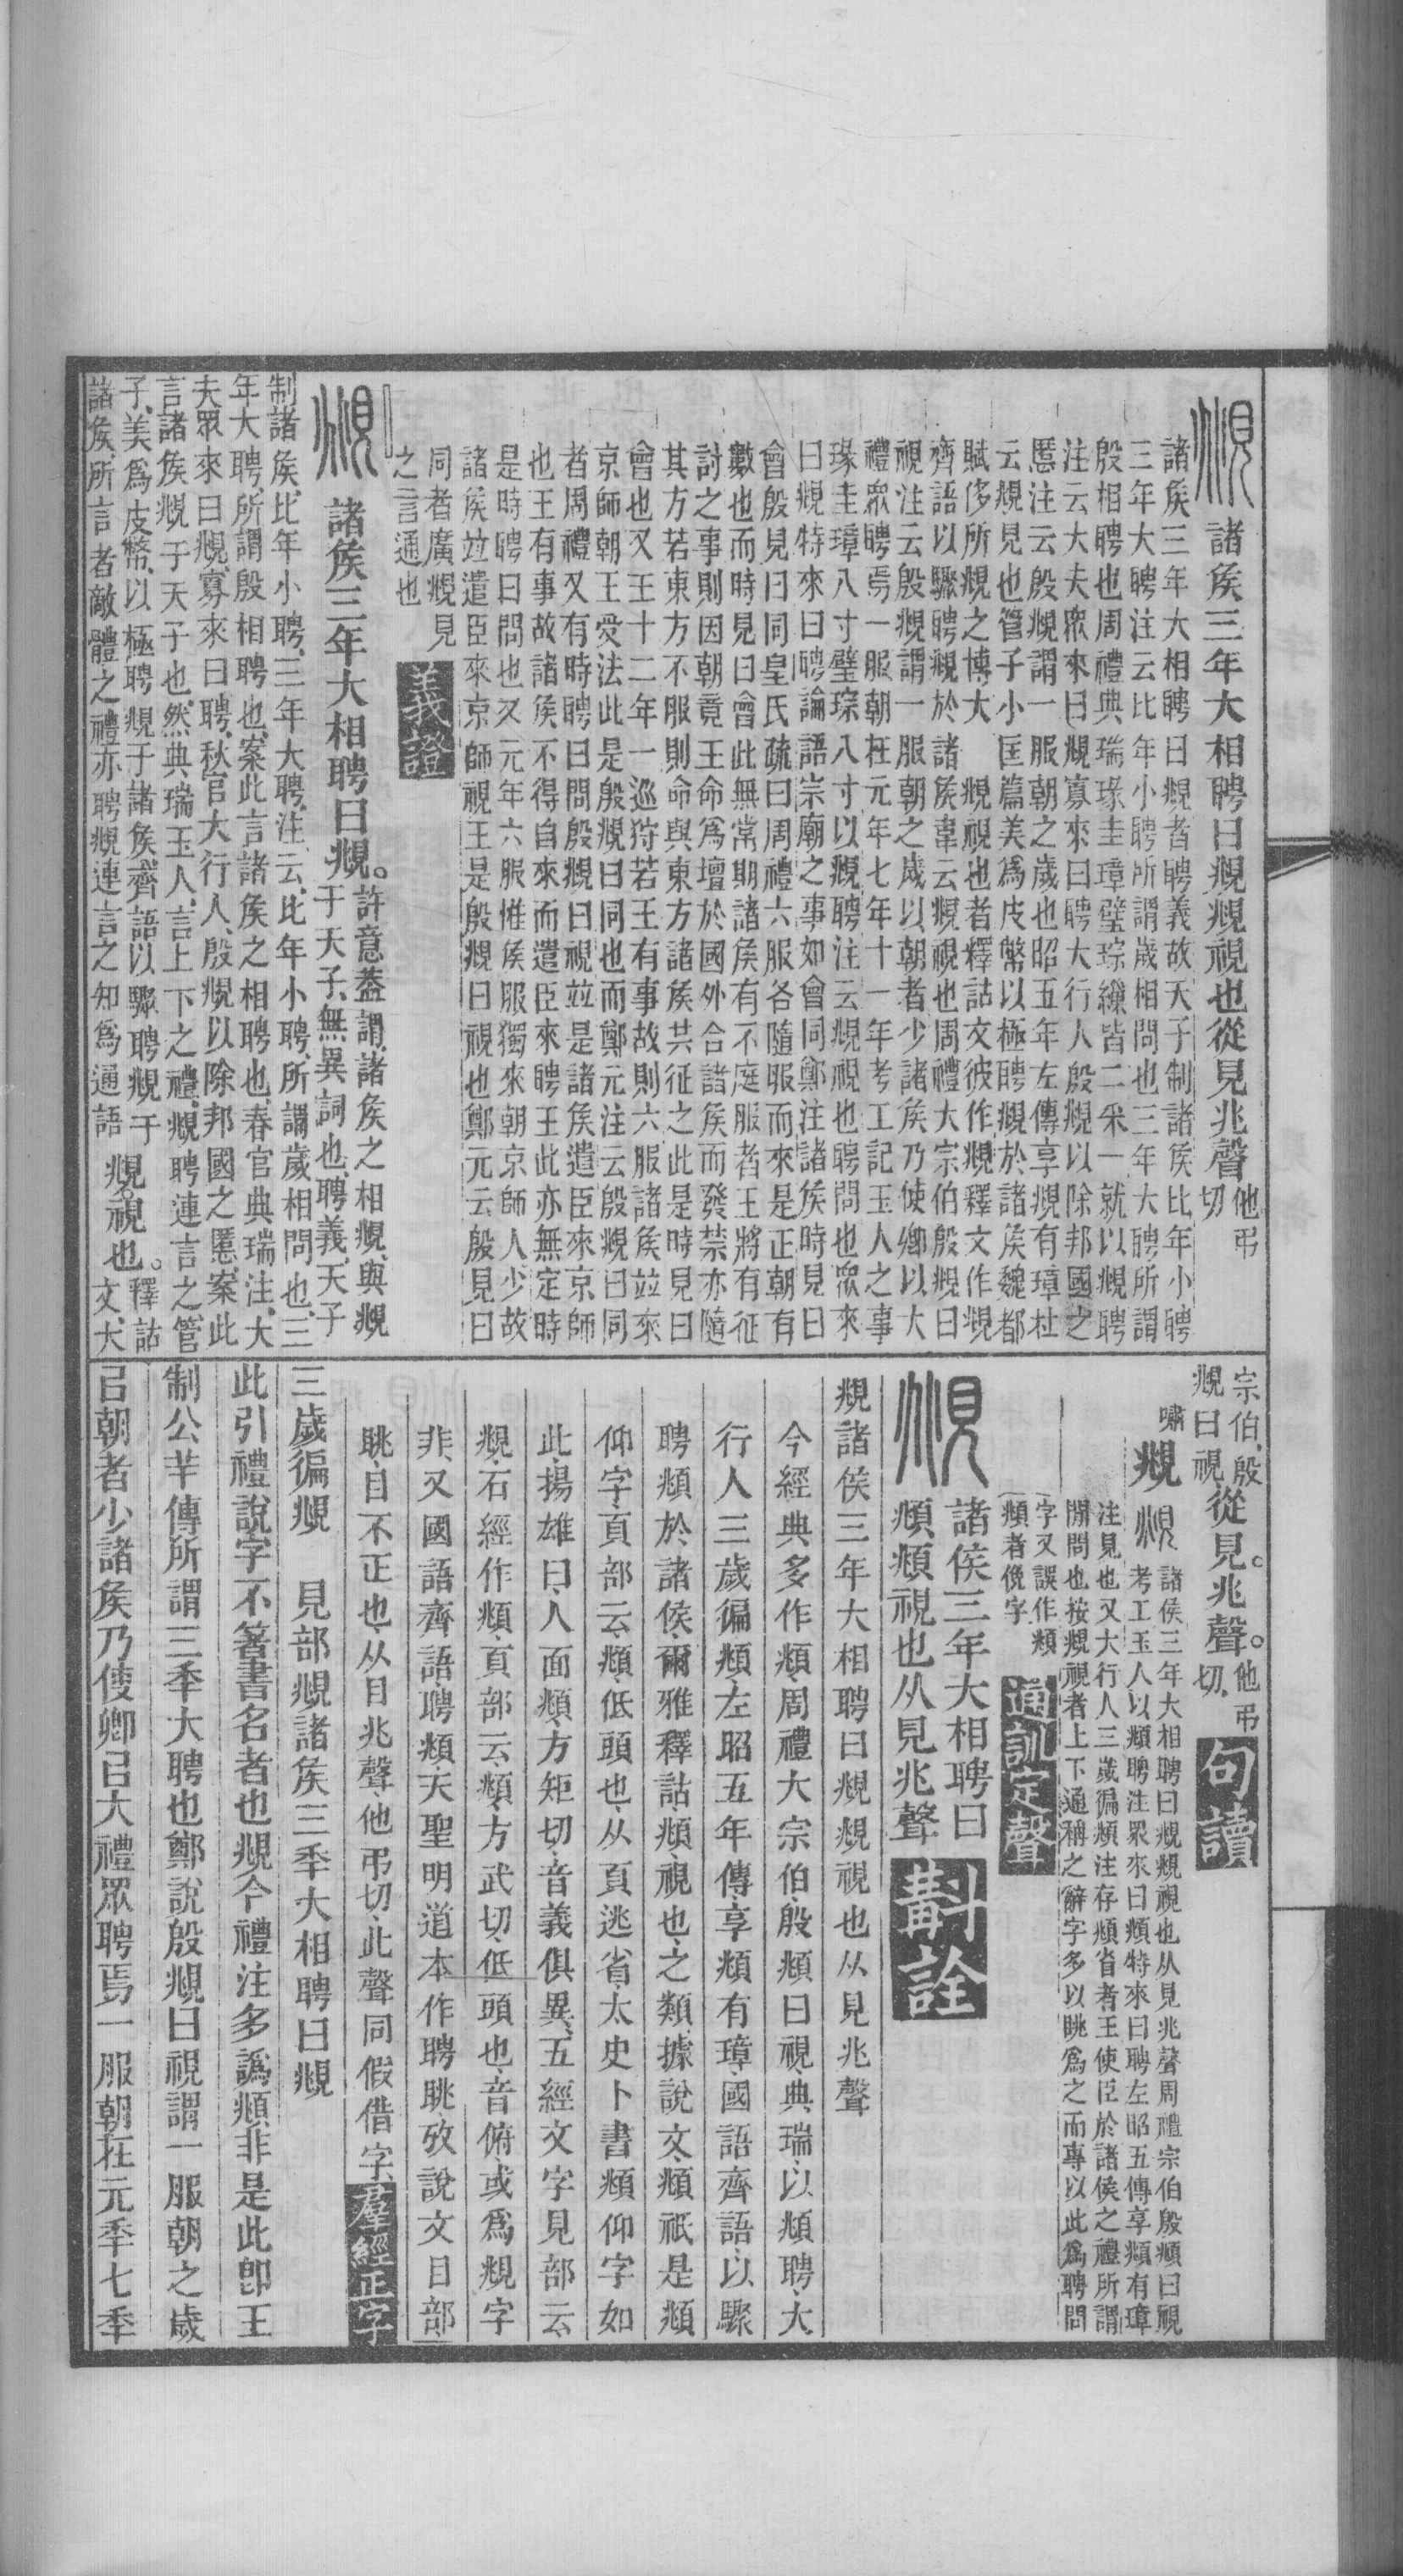 諸矦三年大相聘曰覜覜視也從見兆聲他弔
切
諸矦三年大相聘曰覜者聘義故天子制諸矦比年小聘
三年大聘注云比年小聘所謂歲相問也三年大聘所謂
殷相聘也周禮典瑞瑑圭璋璧琮繅皆二采一就以覜聘
注云大夫眾來曰覜寡來曰聘大行人殷覜以除邦國之
慝注云殷覜謂一服朝之歲也昭五年左傳享覜有璋杜
云覜見也管子小匡篇美爲皮幣以極聘覜於諸矦魏都
賦侈所覜之博大　覜視也者釋詁文彼作覜釋文作覜
齊語以驟聘覜於諸矦韋云覜視也周禮大宗伯殷覜曰
視注云殷覜謂一服朝之歲以朝者少諸矦乃使卿以大
禮眾聘焉一服朝在元年七年十一年考工記玉人之事
瑑圭璋八寸璧琮八寸以覜聘注云覜視也聘問也眾來
曰覜特來曰聘論語宗廟之事如會同鄭注諸矦時見曰
會殷見曰同皇氏疏曰周禮六服各隨服而來是正朝有
數也而時見曰會此無常期諸矦有不庭服者王將有征
討之事則因朝竟王命爲壇於國外合諸矦而發禁亦隨
其方若東方不服則命與東方諸矦共征之此是時見曰
會也又王十二年一巡狩若王有事故則六服諸矦竝來
京師朝王受法此是殷覜曰同也而鄭元注云殷覜曰同
者周禮又有時聘曰問殷覜曰視竝是諸矦遣臣來京師
也王有事故諸矦不得自來而遣臣來聘王此亦無定時
是時聘曰問也又元年六服惟矦服獨來朝京師人少故
諸矦竝遣臣來京師視王是殷覜曰視也鄭元云殷見曰
同者廣覜見
之言通也
義證
諸矦三年大相聘曰覜。許意葢謂、諸矦之相覜、與覜
于天子、無異詞也、聘義、天子
制諸矦、比年小聘、三年大聘、注云、比年小聘、所謂歲相問也、三
年大聘、所謂殷相聘也、案此言諸矦之相聘也、春官典瑞注、大
夫眾來曰覜、寡來曰聘、秋官大行人、殷覜以除邦國之慝、案此
言諸矦覜于天子也、然典瑞玉人、言上下之禮、覜聘連言之、管
子、美爲皮幣、以極聘覜于諸矦、齊語以驟聘覜于　覜、視也。釋詁
諸矦、所言者敵體之禮、亦聘覜連言之、知爲通語　文、大
宗伯、殷
覜曰視
從見。兆聲。他弔
切、
句讀
嘯
覜
諸侯三年大相聘曰覜覜視也从見兆聲周禮宗伯殷頫曰視
考工玉人以頫聘注眾來曰頫特來曰聘左昭五傳享頫有璋
注見也又大行人三歲徧頫注存頫省者王使臣於諸侯之禮所謂
閒問也按覜視者上下通稱之辭字多以眺爲之而專以此爲聘問
字又誤作頫
頫者俛字
通訓定聲
諸侯三年大相聘曰
頫頫視也从見兆聲
斠詮
覜諸侯三年大相聘曰覜覜視也从見兆聲
今經典多作頫、周禮大宗伯、殷頫曰視、典瑞、以頫聘、大
行人三歲徧頫、左昭五年傳、享頫有璋、國語齊語、以驟
聘頫於諸侯、爾雅釋詁、頫、視也、之類、據說文、頫祇是頫
仰字、頁部云、頫、低頭也、从頁逃省、太史卜書頫仰字如
此、揚雄曰、人面頫、方矩切、音義俱異、五經文字見部云、
覜、石經作頫、頁部云、頫、方武切、低頭也、音俯、或爲覜字
非、又國語齊語、聘頫、天聖明道本作聘眺、攷說文目部、
眺、目不正也、从目兆聲、他弔切、此聲同假借字、
羣經正字
三歲徧覜　見部覜諸矦三秊大相聘曰覜
此引禮說字不箸書名者也覜今禮注多譌頫非是此卽王
制公羊傳所謂三秊大聘也鄭說殷覜曰視謂一服朝之歲
㠯朝者少諸矦乃使卿㠯大禮眾聘焉一服朝在元秊七秊